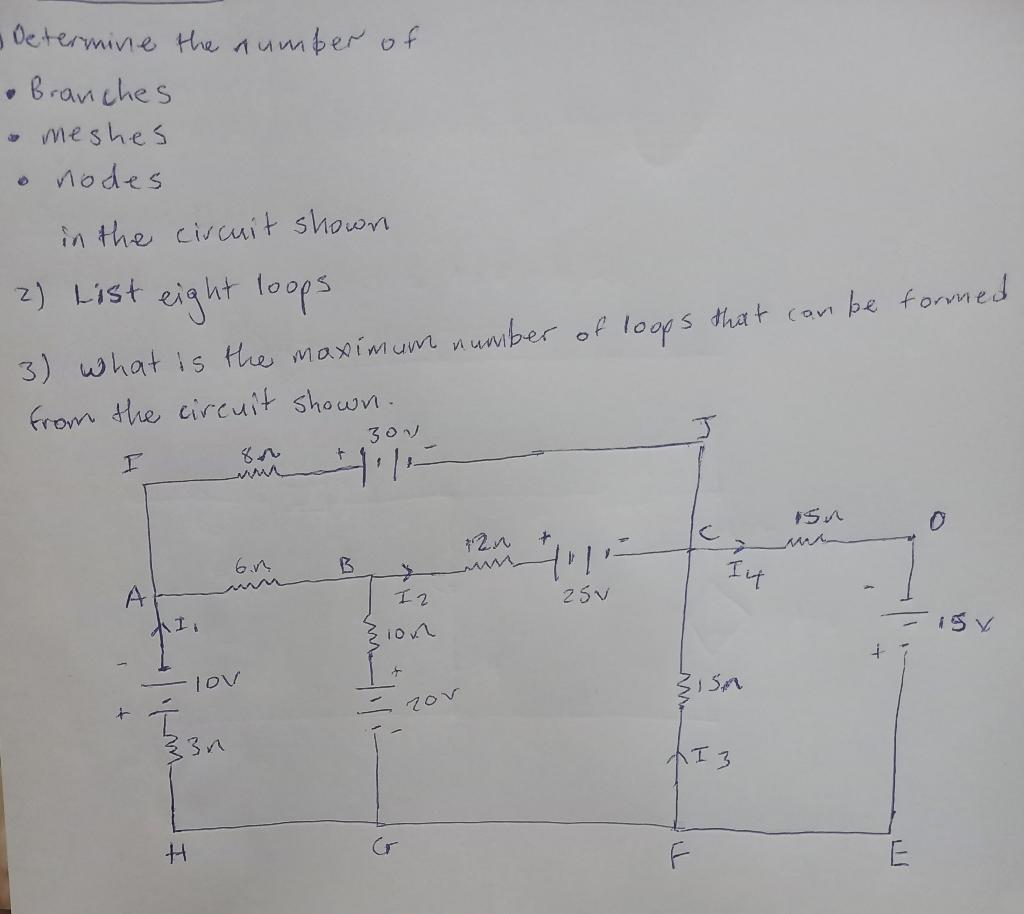 ) Determine the number of
• Branches
• meshes
• nodes
in the circuit shown
2) List eight loops
3) what is the maximum number of loops that can be formed
from the circuit shown.
30V
J
I
8Ω
+
-
15Ω
D
12Ω
+
-
C
6Ω
B
I4
A
I2
25V
-
I1
10Ω
15V
-
10V
+
+
15Ω
+
20V
-
3Ω
I3
H
G
F
E